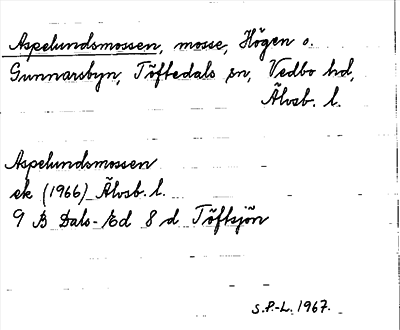 Aspelundsmossen, mosse, Högen o.
Gunnarsbyn, Töftedals sn, Vedbo hd,
Älvsb. l.
Aspelundsmossen
ek (1966) Älvsb. l.
9 B Dals-Ed 8 d Töftsjön
S.P.-L. 1967.